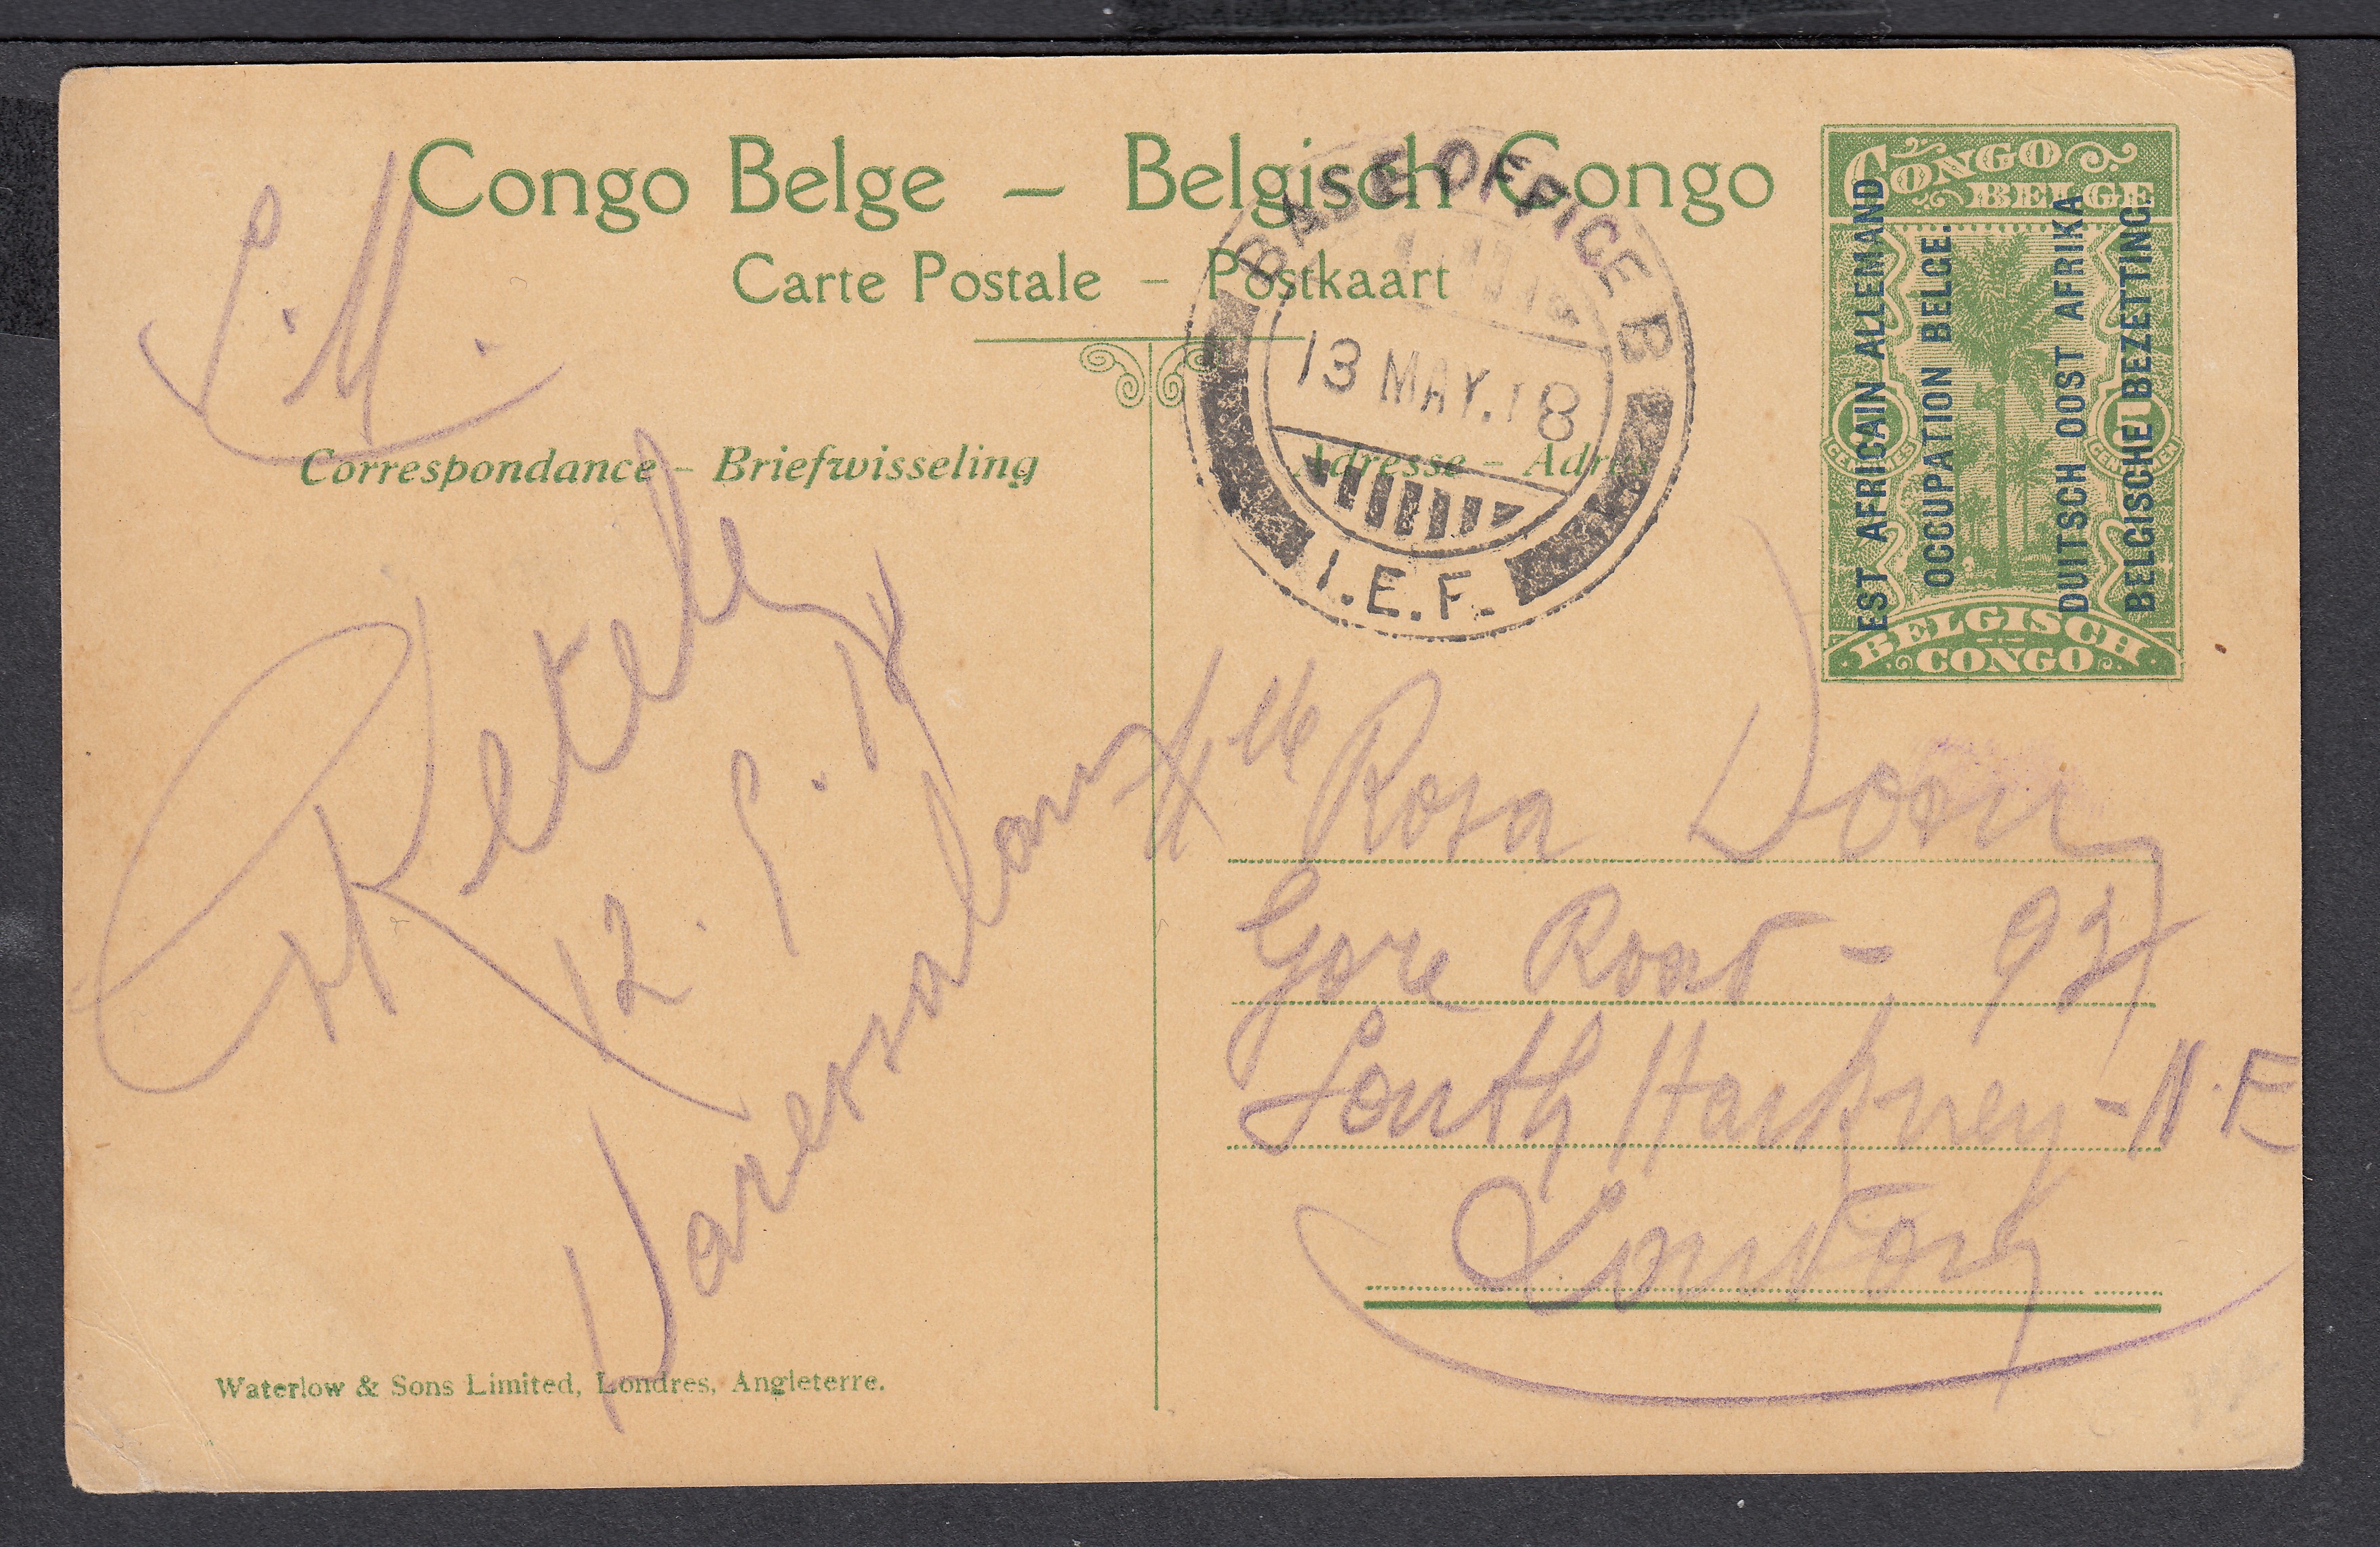 Congo Belge – Belgisch Congo
Carte Postale – Postkaart
S.M.
Correspondance – Briefwisseling
Adresse – Adres
BASE OFFICE B
13 MAY. 18
I.E.F.
CONGO
BELGE
EST AFRICAIN ALLEMAND
OCCUPATION BELGE.
DUITSCH OOST AFRIKA
BELGISCHE BEZETTING.
CENTIMES
CENTIEMEN
BELGISCH
CONGO
12.5.18
Daressalam
Mlle Rosa
Gore Road – 97
South Hackney – N.E
London
Waterlow & Sons Limited, Londres, Angleterre.